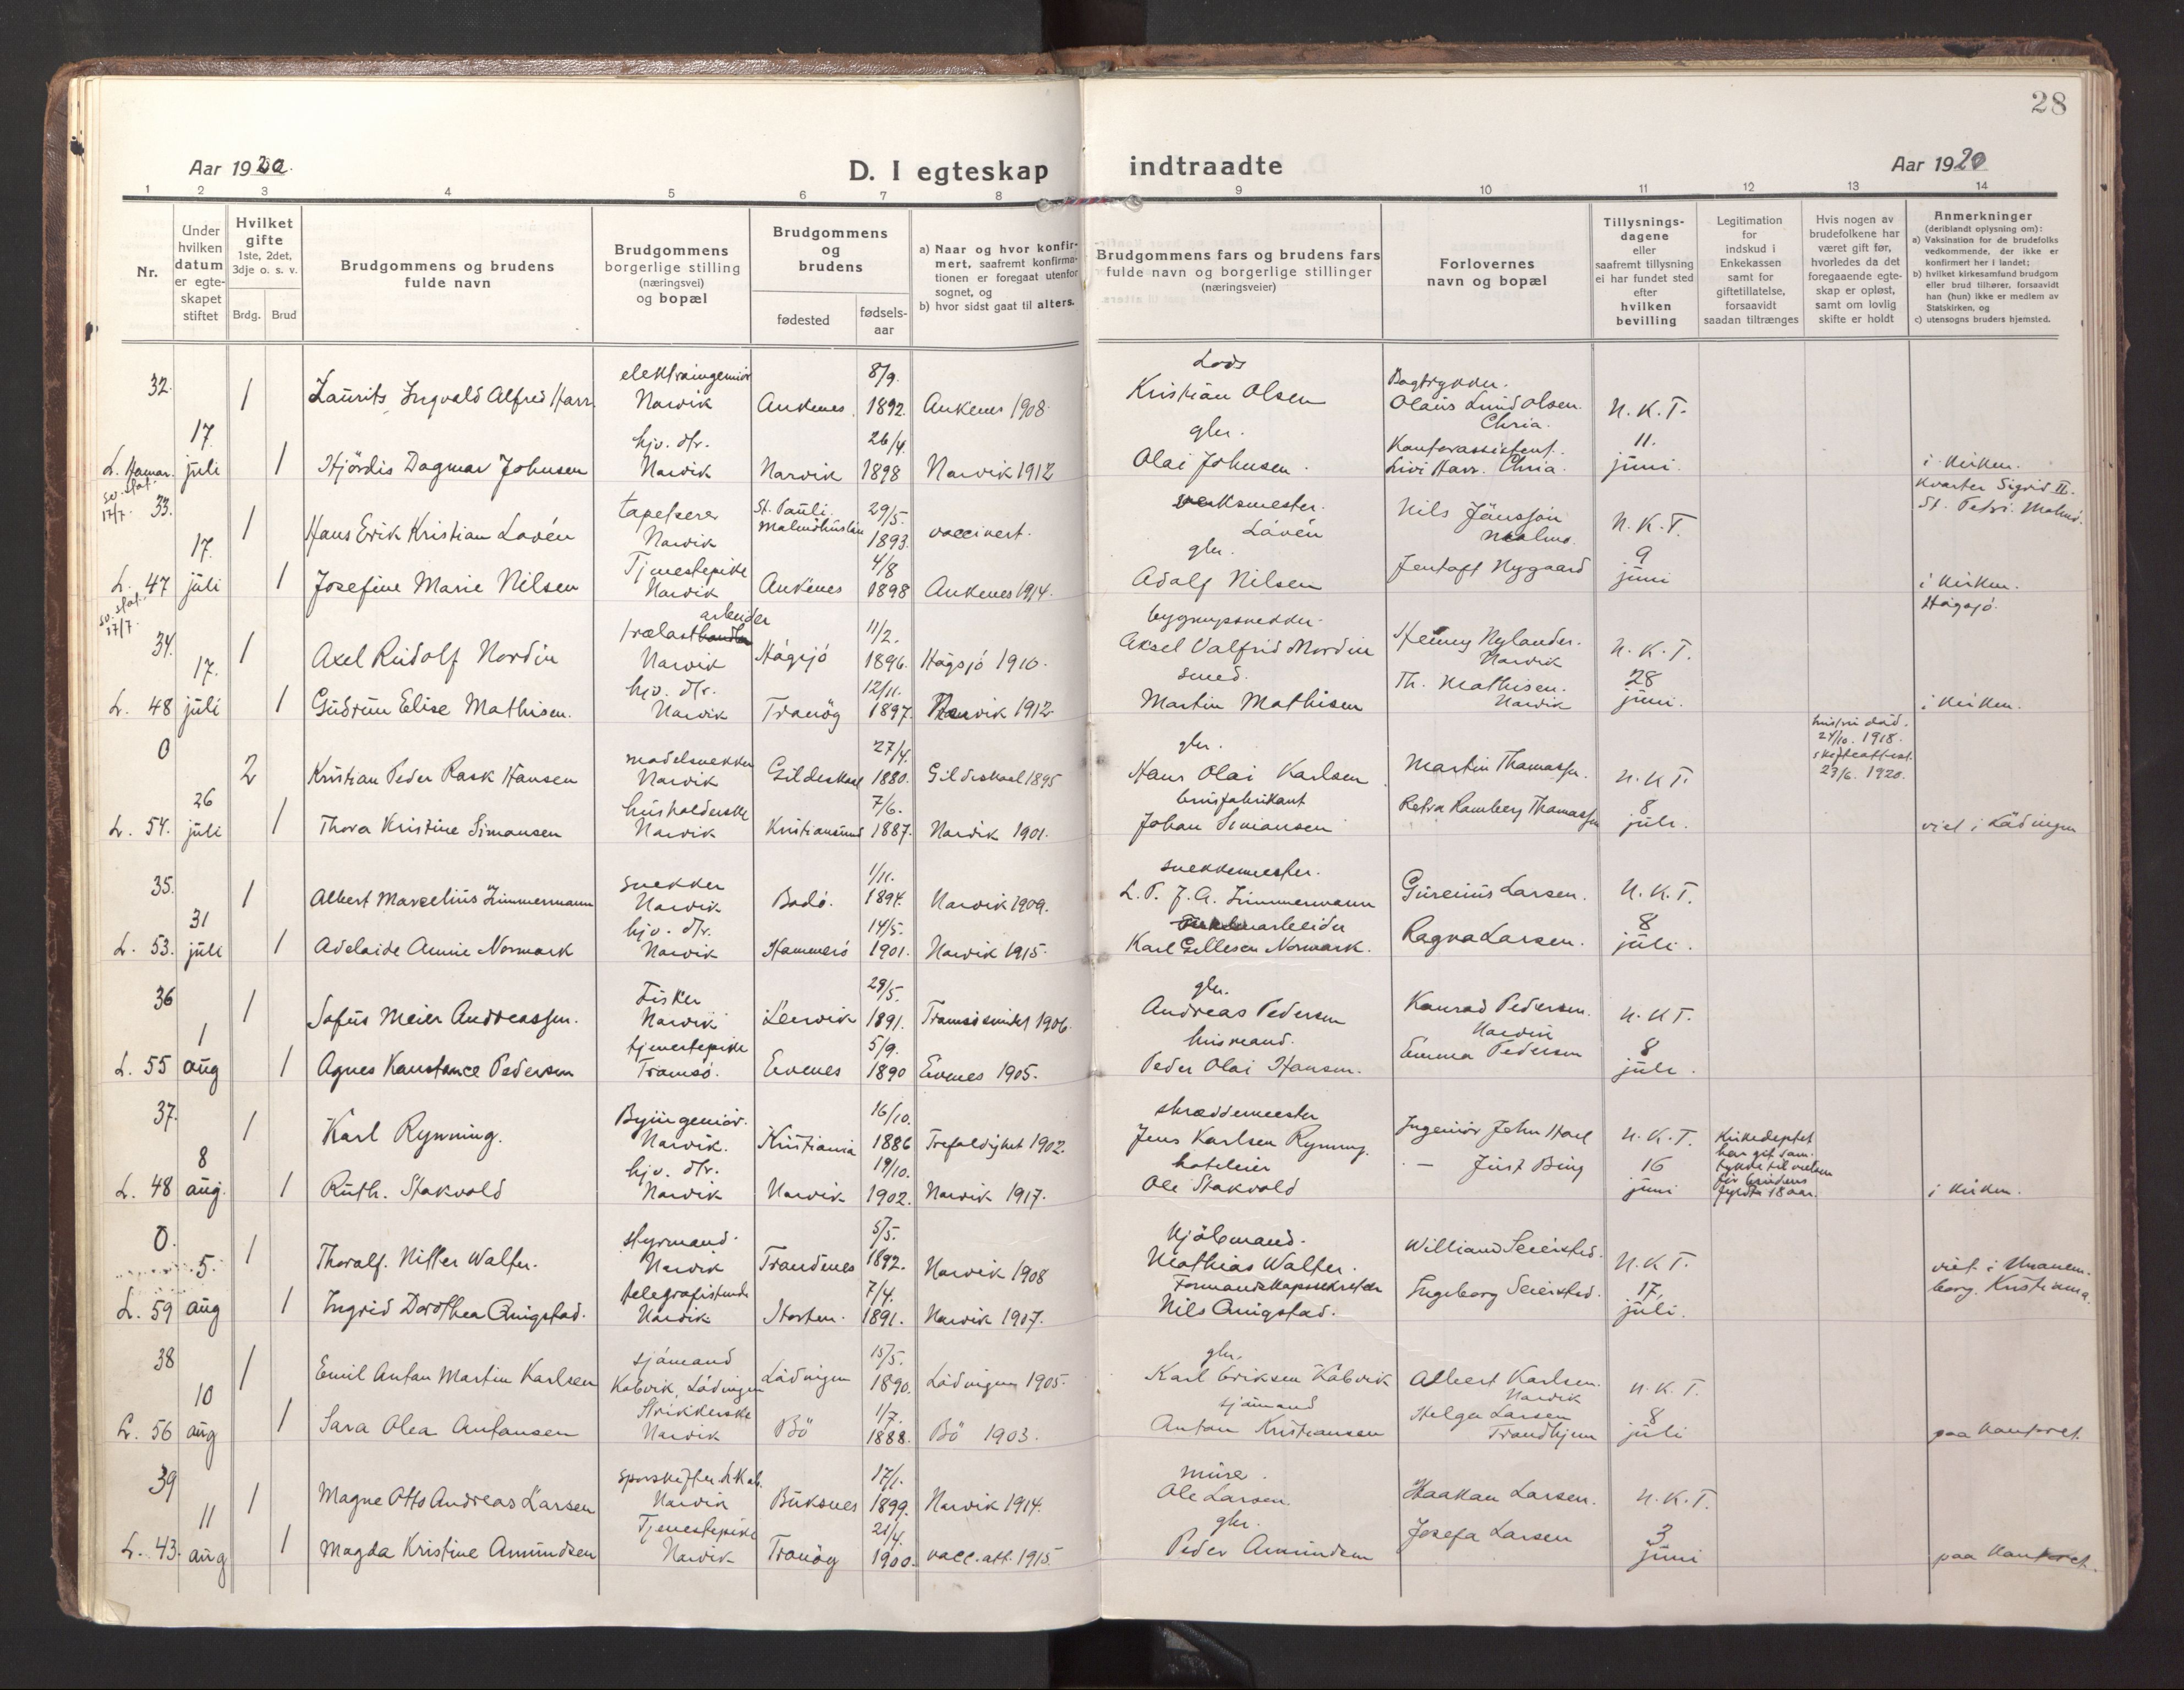 28
Aar 1920.
D. I egteskap indtraadte
Aar 1920
1 2 3 4 5 6 7 8 9 10 11 12 13 14
Nr.
Under hvilken datum er egte-skapet stiftet
Hvilket gifte 1ste, 2det, 3dje o. s. v.
Brdg. Brud
Brudgommens og brudens fulde navn
Brudgommens borgerlige stilling (næringsvei) og bopæl
Brudgommens og brudens
fødested
fødsels-aar
a) Naar og hvor konfir-mert, saafremt konfirma-tionen er foregaat utenfor sognet, og
b) hvor sidst gaat til alters.
Brudgommens fars og brudens fars fulde navn og borgerlige stillinger (næringsveier)
Forlovernes navn og bopæl
Tillysnings-dagene eller saafremt tillysning ei har fundet sted efter hvilken bevilling
Legitimation for indskud i Enkekassen samt for giftetillatelse, forsaavidt saadan tiltrænges
Hvis nogen av brudefolkene har været gift før, hvorledes da det foregaaende egte-skap er opløst, samt om lovlig skifte er holdt
Anmerkninger (deriblandt oplysning om):
a) Vaksination for de brudefolks vedkommende, der ikke er konfirmert her i landet;
b) hvilket kirkesamfund brudgom eller brud tilhører, forsaavidt han (hun) ikke er medlem av Statskirken, og
c) utensogns bruders hjemsted.
32. 1 Laurits Ingvald Alfred Harr. elektroingeniör Narvik Ankenes 8/9. 1892. Ankenes 1908. Lods Kristian Olsen Bogtrykker. Olaus Lund Olsen. Chria. N. K. T.
L. Hamar. 17. juli 1 Hjördis Dagmar Johnsen hjv. dtr. Narvik Narvik 26/4. 1898 Narvik 1912 gbr. Olai Johnsen. Kontorassistent. Livi Harr. Chria. 11. juni. i kirken.
sv. stat. 17/7
33. 1 Hans Erik Kristian Lovén tapetserer Narvik St. Pauli. Malmöhuslän 29/5. 1893. vaccinert. verksmester. Lovén Nils Jönsson Malmö. N. K. T. Kvarter Sigrid II. St. Petri. Malmö.
L. 47 17. juli 1 Josefine Marie Nilsen Tjenestepike Narvik Ankenes 4/8 1898 Ankenes 1914. gbr. Adolf Nilsen Jentoft Nygaard 9 juni i kirken.
sv. stat. 17/7.
34. 1 Axel Rudolf Nordin trælast arbeider Narvik Hågsjö 11/2. 1896. Hågsjö 1910. bygningssnekker. Aksel Valfrid Nordin Henny Nylander. Narvik N. K. T. Hågsjö.
L. 48 17. juli 1 Gudrun Elise Mathisen. hjv. dtr. Narvik Tranög 12/11. 1897. Narvik 1912 smed. Martin Mathisen Th. Mathisen. Narvik 28 juni. i kirken.
0 2 Kristian Peder Rask Hansen modelsnekker Narvik Gildeskaal 27/4. 1880. Gildeskaal 1895 gbr. Hans Olai Karlsen Martin Thomassen. N. K T. hustru död. 24/10. 1918. skifteattest. 23/6. 1920.
L. 54. 26 juli 1 Thora Kristine Simonsen husholderske Narvik Kristiansund 7/6. 1887. Narvik 1901. brusfabrikant Johan Simonsen Petra Ramberg Thomassen 8 juli. viet i Lödingen
35. 1 Albert Marcelius Zimmermann snekker Narvik Bodö. 1/11. 1894. Narvik 1909. snekkermester. L. P. J. A. Zimmermann Gurenius Larsen. N. K. T.
L. 53. 31 juli 1 Adelaide Annie Normark hjv. dtr. Narvik Hammerö 14/5. 1901. Narvik 1915. arbeider Karl Gellesen Normark. Ragna Larsen. 8 juli.
36 1 Sofus Meier Andreassen. Fisker Narvik Lervik 29/5. 1891. Tromsösundet 1906. gbr. Andreas Pedersen Konrad Pedersen. Narvik N. K T.
L. 55 1 aug 1 Agnes Konstance Pedersen tjenestepike Tromsö. Evenes 5/9. 1890 Evenes 1905. husmand. Peder Olai Hansen. Emma Pedersen 8 juli.
37. 1 Karl Rynning. Byingeniör. Narvik. Kristiania 16/10. 1886 Trefoldighet 1902. skræddermester Jens Karlsen Rynning. Ingeniör John Hoel N. K. T. Kirkedeptet har git sam-tykke til vielsen för brudens fyldte 18 aar.
L. 48 8 aug. 1 Ruth. Stokvold hjv. dtr. Narvik Narvik 19/10. 1902. Narvik 1917. hoteleier Ole Stokvold — Just Bing 16 juni i kirken.
0. 1 Thoralf. Nitter Walter. styrmand. Narvik Trondenes 5/5. 1892. Narvik 1908 Kjöbmand. Mathias Walter. William Seiersted. N. K T. viet i Uranien-borg. Kristiania.
L. 59 5. aug 1 Ingrid Dorothea Quigstad. telegrafistinde Narvik Horten. 7/4. 1891. Narvik 1907. Formandskapssekretær Nils Quigstad. Ingeborg Seiersted. 17, juli.
38 1 Emil Anton Martin Karlsen sjömand Kobvik, Lödingen Lödingen 15/5. 1890. Lödingen 1905. gbr. Karl Eriksen Kobvik Albert Karlsen. Narvik N. K. T.
L. 56 10 aug 1 Sara Olea Antonsen Strikkerske Narvik Bö 1/7. 1888. Bö 1903. sjömand Anton Kristiansen Helga Larsen Trondhjem 8 juli paa kontoret.
39 1 Magne Otto Andreas Larsen sporskifter Narvik Buksnes 17/1. 1899. Narvik 1914. murer. Ole Larsen. Haakon Larsen. N. K. T.
L. 43. 11 aug 1 Magda Kristine Amundsen Tjenestepike Narvik Tranög 21/4. 1900. vacc. att. 1915. gbr. Peder Amundsen Josefa Larsen 3 juni paa kontoret.